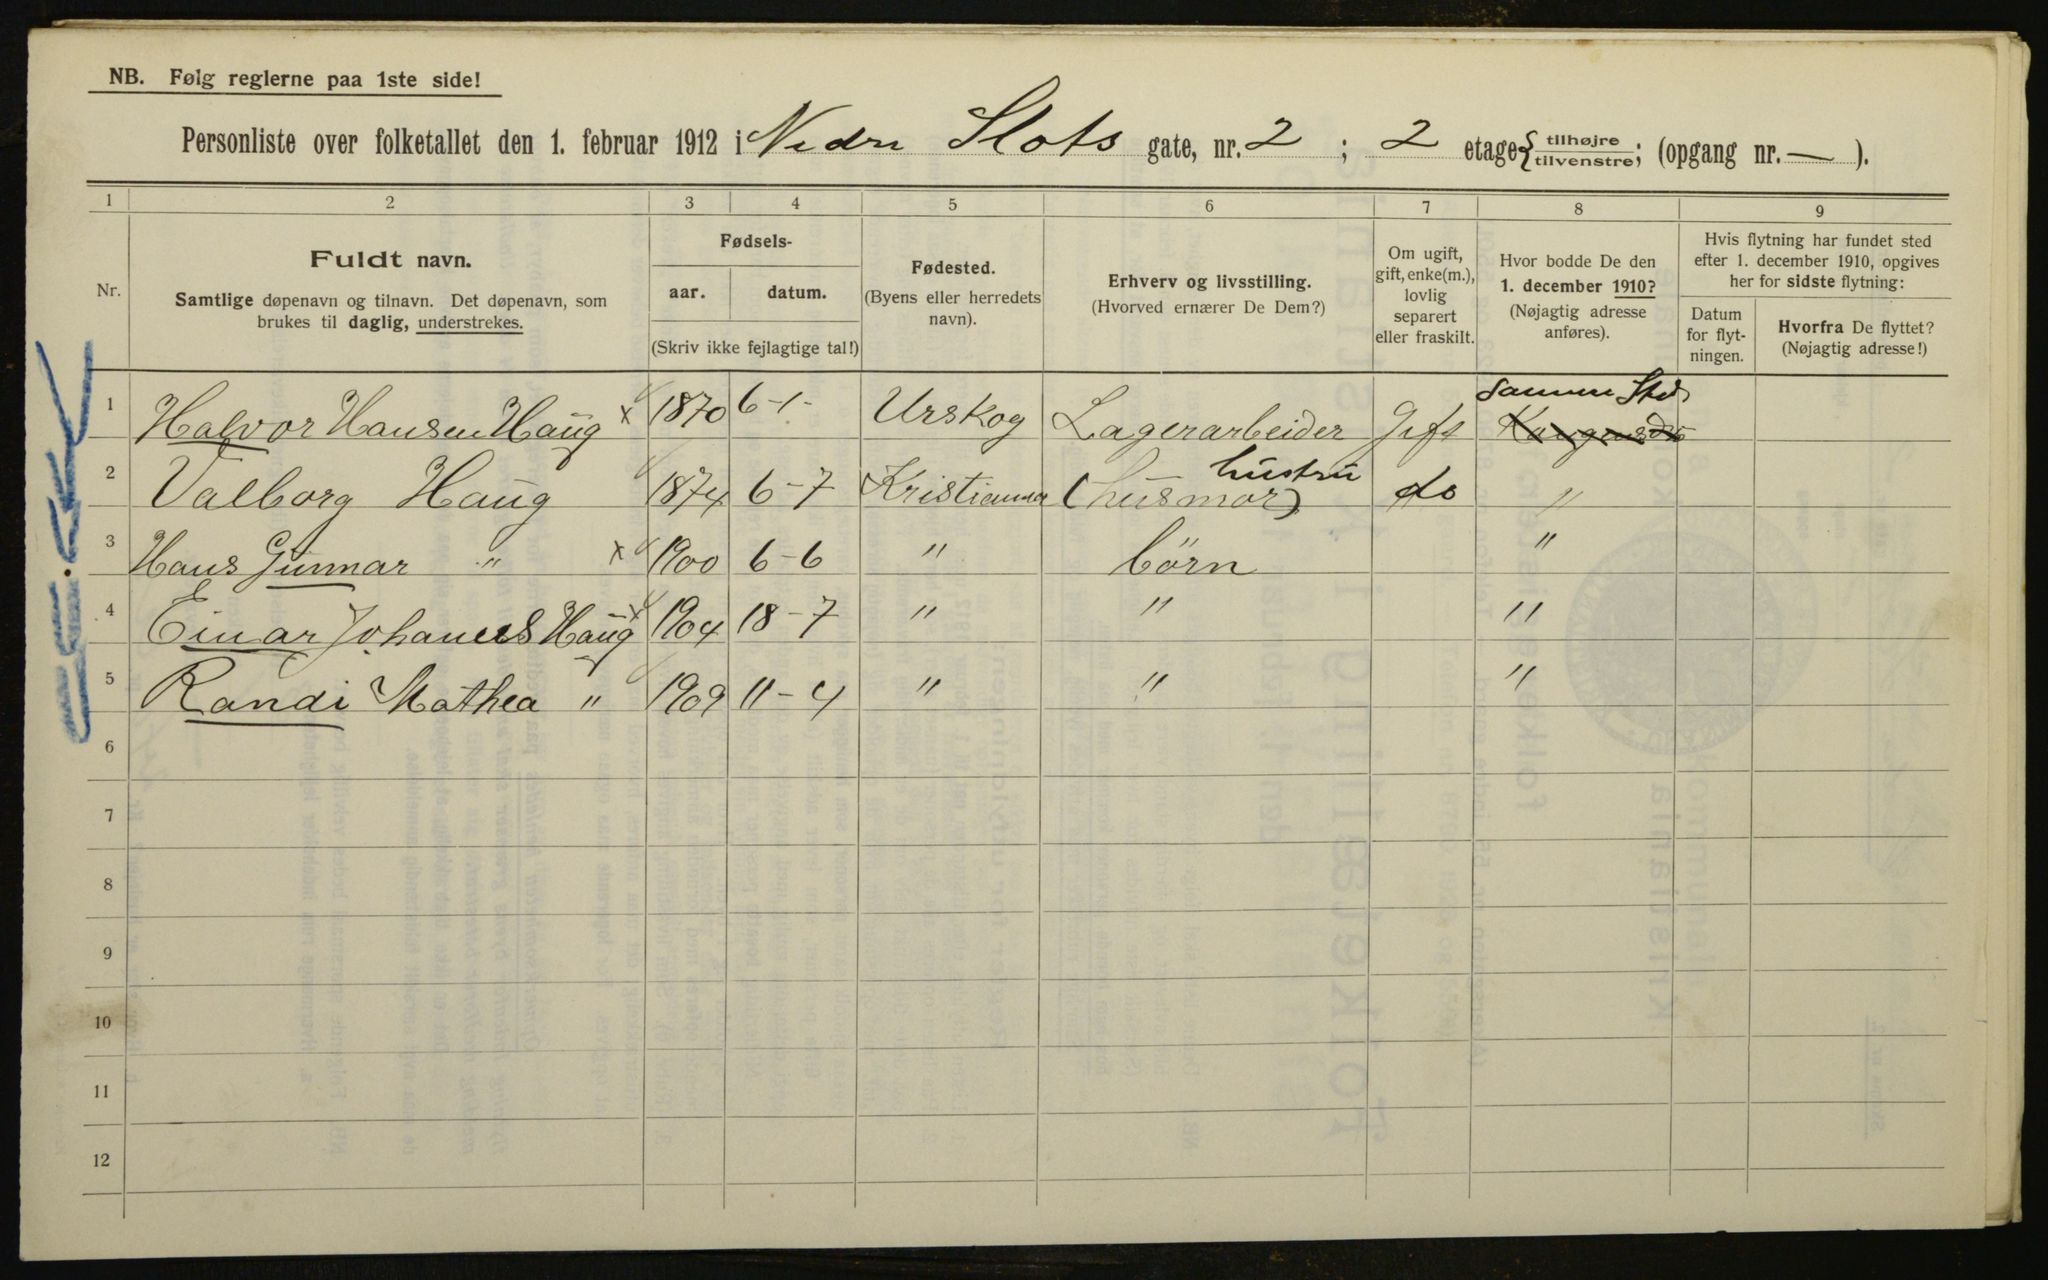 NB. Følg reglerne paa 1ste side!
Personliste over folketallet den 1. februar 1912 i Nedre Slots gate, nr. 2 ; 2 etage { tilhøjre / tilvenstre ; (opgang nr. — ).
1 2 3 4 5 6 7 8 9
Nr.
Fuldt navn.
Samtlige døpenavn og tilnavn. Det døpenavn, som
brukes til daglig, understrekes.
Fødsels-
aar. datum.
(Skriv ikke fejlagtige tal!)
Fødested.
(Byens eller herredets
navn).
Erhverv og livsstilling.
(Hvorved ernærer De Dem?)
Om ugift,
gift, enke(m.),
lovlig
separert
eller fraskilt.
Hvor bodde De den
1. december 1910?
(Nøjagtig adresse
anføres).
Hvis flytning har fundet sted
efter 1. december 1910, opgives
her for sidste flytning:
Datum
for flyt-
ningen.
Hvorfra De flyttet?
(Nøjagtig adresse!)
samme Sted
1 Halvor Hansen Haug x 1870 6-1- Urskog Lagerarbeider Gift
hustru
2 Valborg Haug 1874 6-7 Kristiania (husmor) do "
3 Hans Gunnar " x 1900 6-6 " börn "
4 Einar Johannes Haug x 1904 18-7 " " "
5 Randi Mathea " 1909 11-4 " " "
6
7
8
9
10
11
12